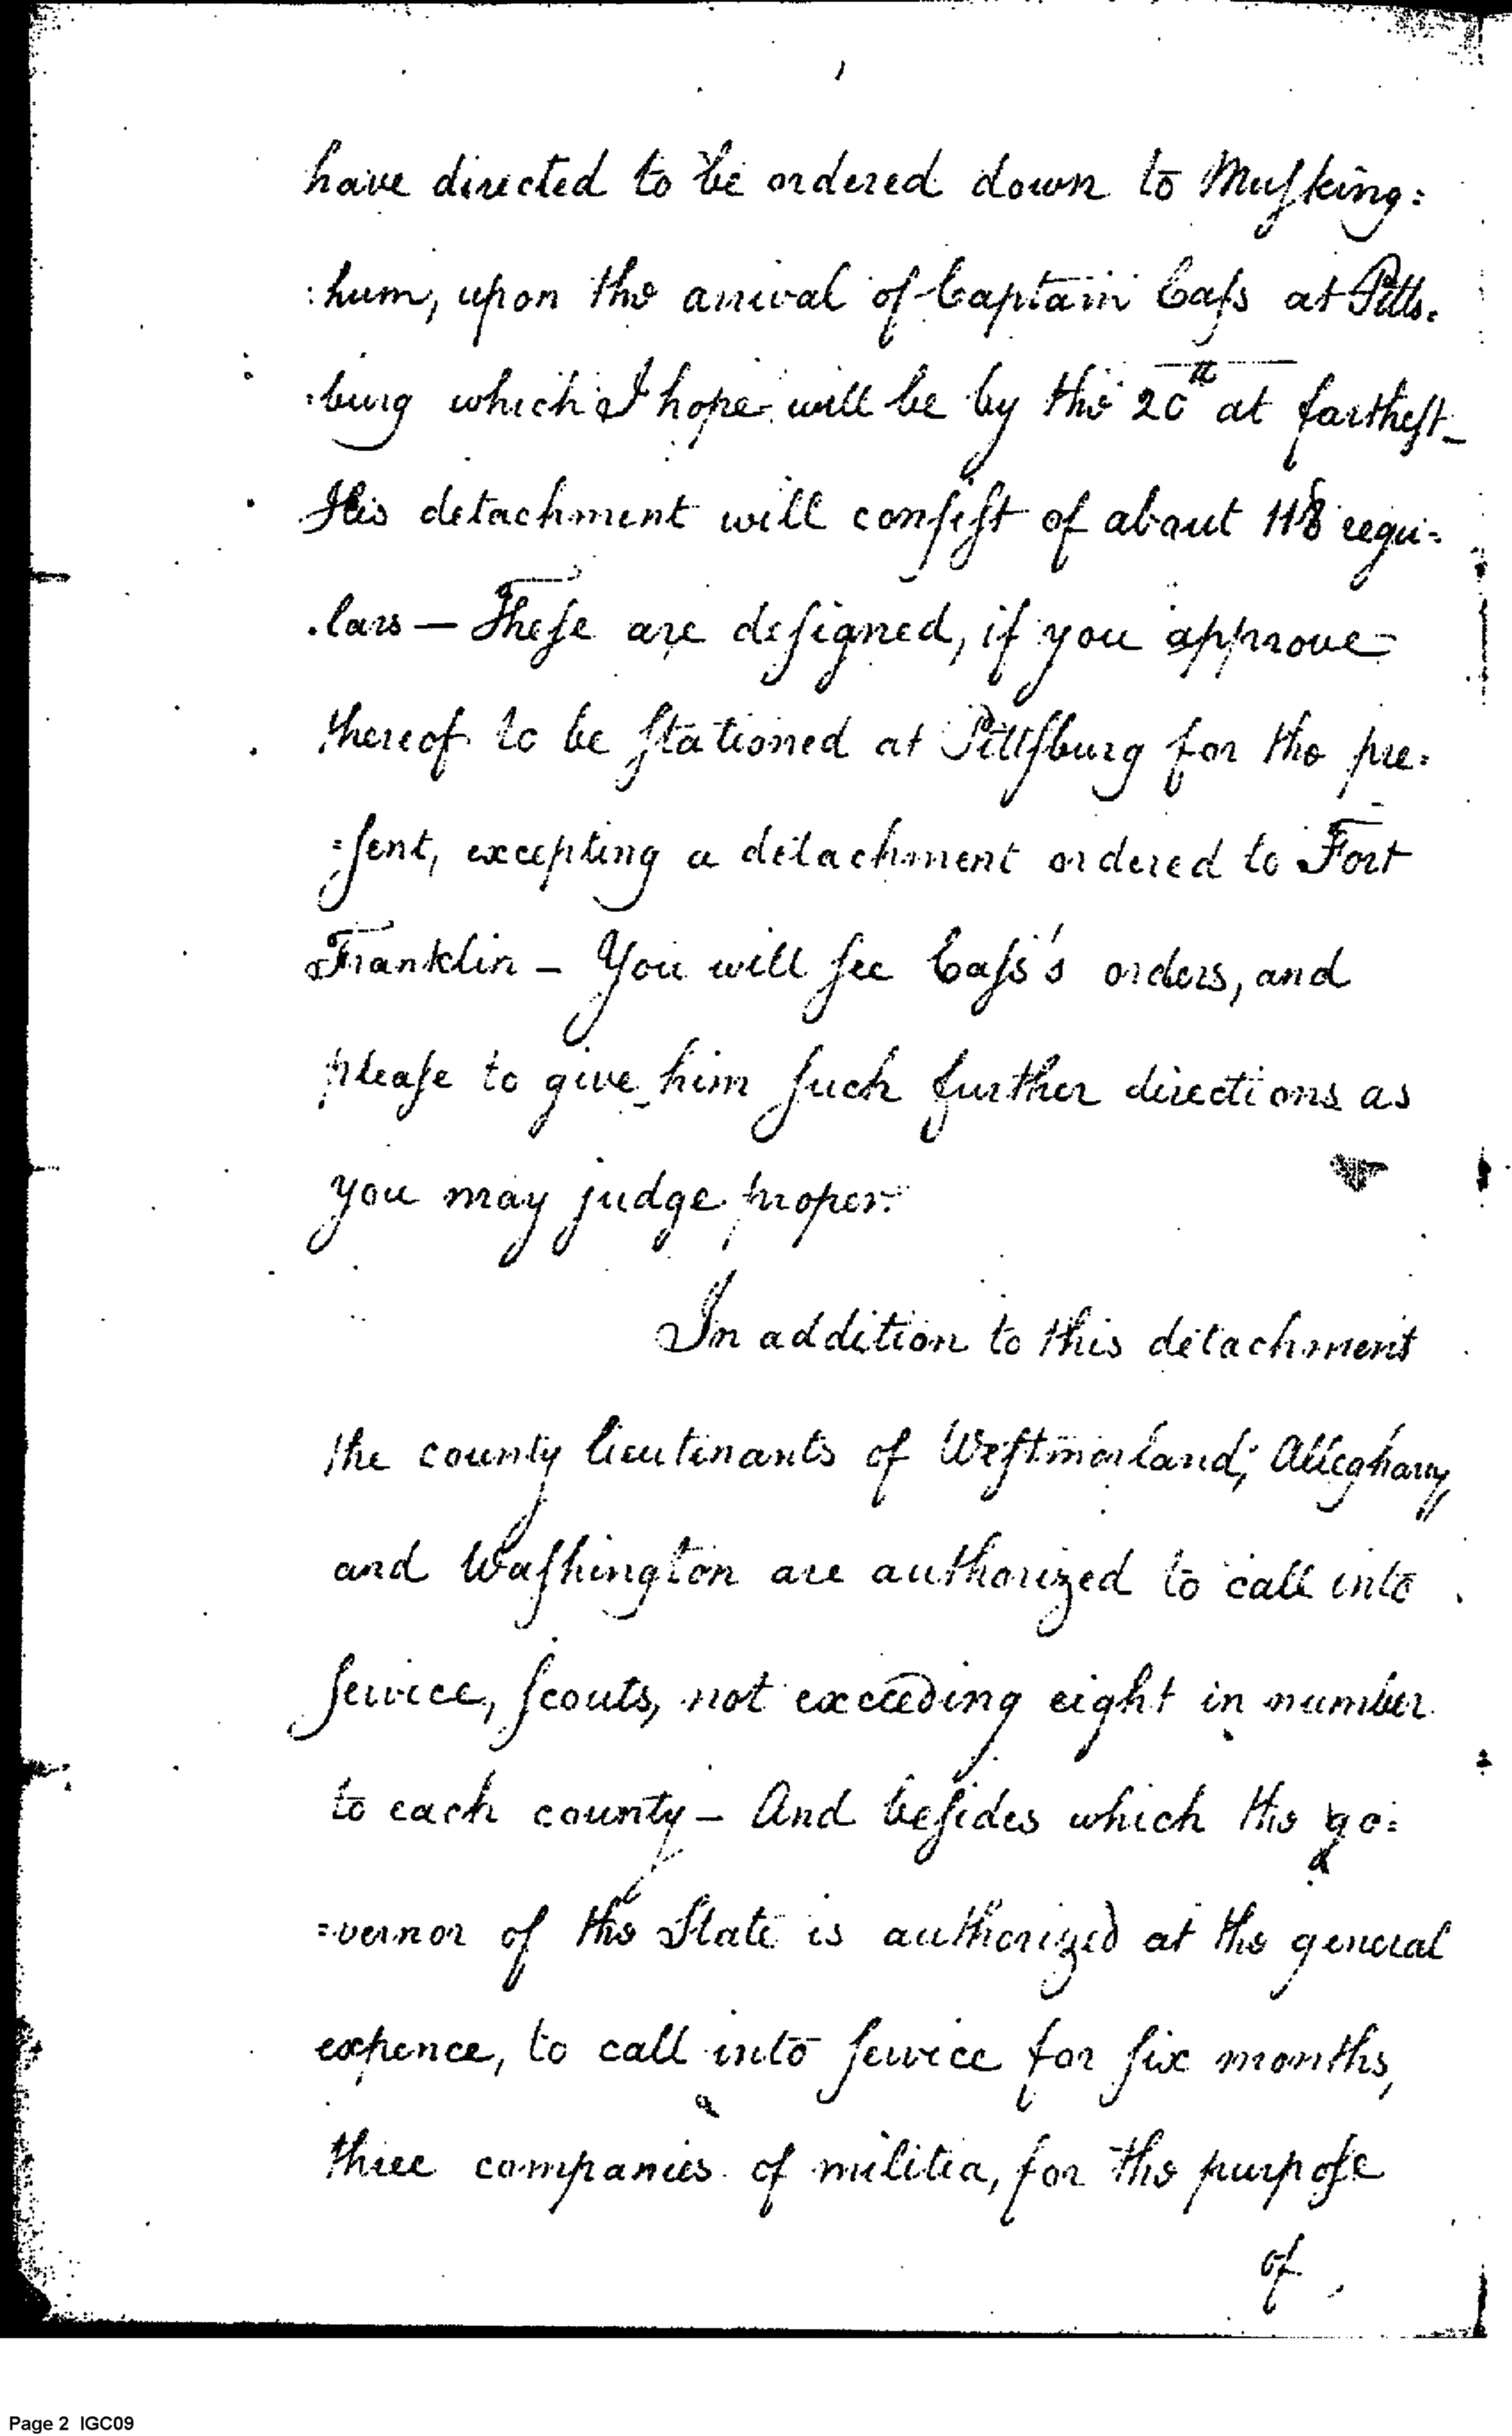 have directed to be ordered down to Muſking:
:hum, upon the arrival of Captain Caſs at Pitts.
:burg which I hope will be by the 20th at fartheſt_
His detachment will conſiſt of about 118 regu:
.lars — Theſe are deſigned, if you approve
thereof to be ſtationed at Pittſburg for the pre:
:ſent, excepting a detachment ordered to Fort
Franklin – You will ſee Caſs's orders, and
pleaſe to give him ſuch further directions as
you may judge proper.
In addition to this detachment
the county lieutenants of Weſtmorland, Alleghany,
and Waſhington are authorized to call into
ſervice, ſcouts, not exceeding eight in number
to each county – And beſides which the go:
:vernor of the State is authorized at the general
expence, to call into ſervice for ſix months,
three companies of militia, for the purpoſe
of
Page 2 IGC09